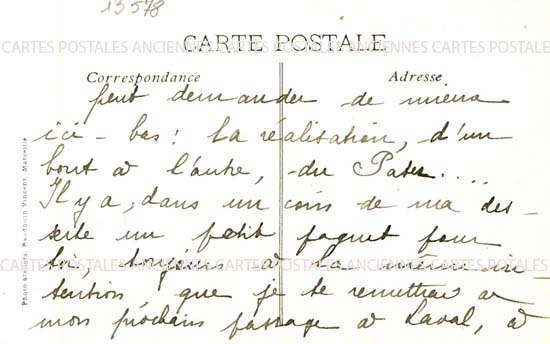 13578
CARTE POSTALE
Correspondance
Adresse
peut demander de mieux
ici-bas : La réalisation, d'un
bout à l'autre, du Pater....
Il y a, dans un coin de ma des-
serte un petit paquet pour
toi, toujours à la même in-
tention, que je te remettrai à
mon prochain passage à Laval, à
CARTES POSTALES ANCIENNES CARTES POSTALES ANCIENNES CARTES POSTALES
Baudouin Vincent, Marseille